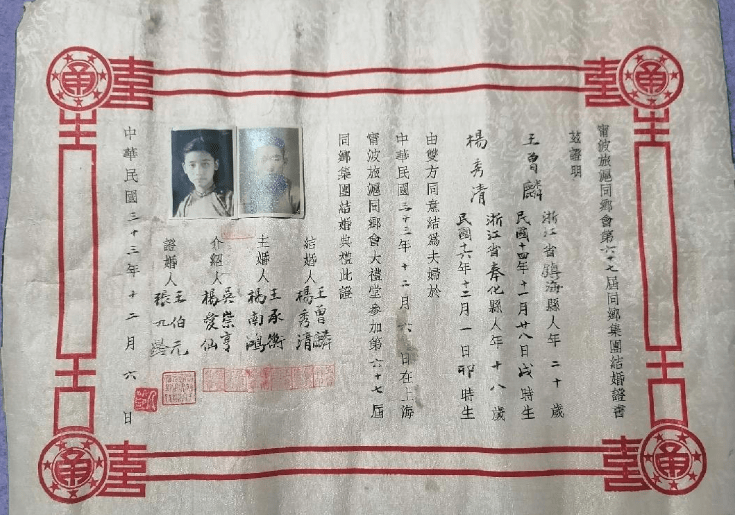 甯波旅滬同鄉會第六十七屆同鄉集團結婚證書
茲證明
王曾麟 浙江省鎮海縣人年二十歲
民國十四年十一月廿八日戌時生
楊秀清 浙江省奉化縣人年十八歲
民國十六年十二月一日卯時生
由雙方同意結爲夫婦於
中華民國三十三年十二月六日在上海
甯波旅滬同鄉會大禮堂參加第六十七屆
同鄉集團結婚典禮此證
結婚人 王曾麟 楊秀清
主婚人 王承衡 楊南鴻
介紹人 吳崇亨 楊愛仙
證婚人 王伯元 張九
中華民國三十三年十二月六日
甬
甬
甬
甬